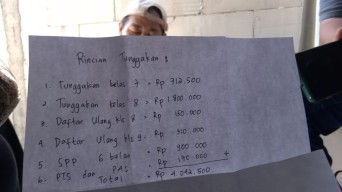 Rincian Tunggakan :
1. Tunggakan kelas 7 = Rp 712.500
2 Tunggakan kelas 8 = Rp 1.800.000
3 Daftar Ulang kls 8 = Rp 150.000
4. Daftar Ulang kls 9 = Rp 310.000
5 SPP 6 bulan = Rp 900.000
6. PTS dan PAS = Rp 190.000 +
Total = Rp 4.042.500